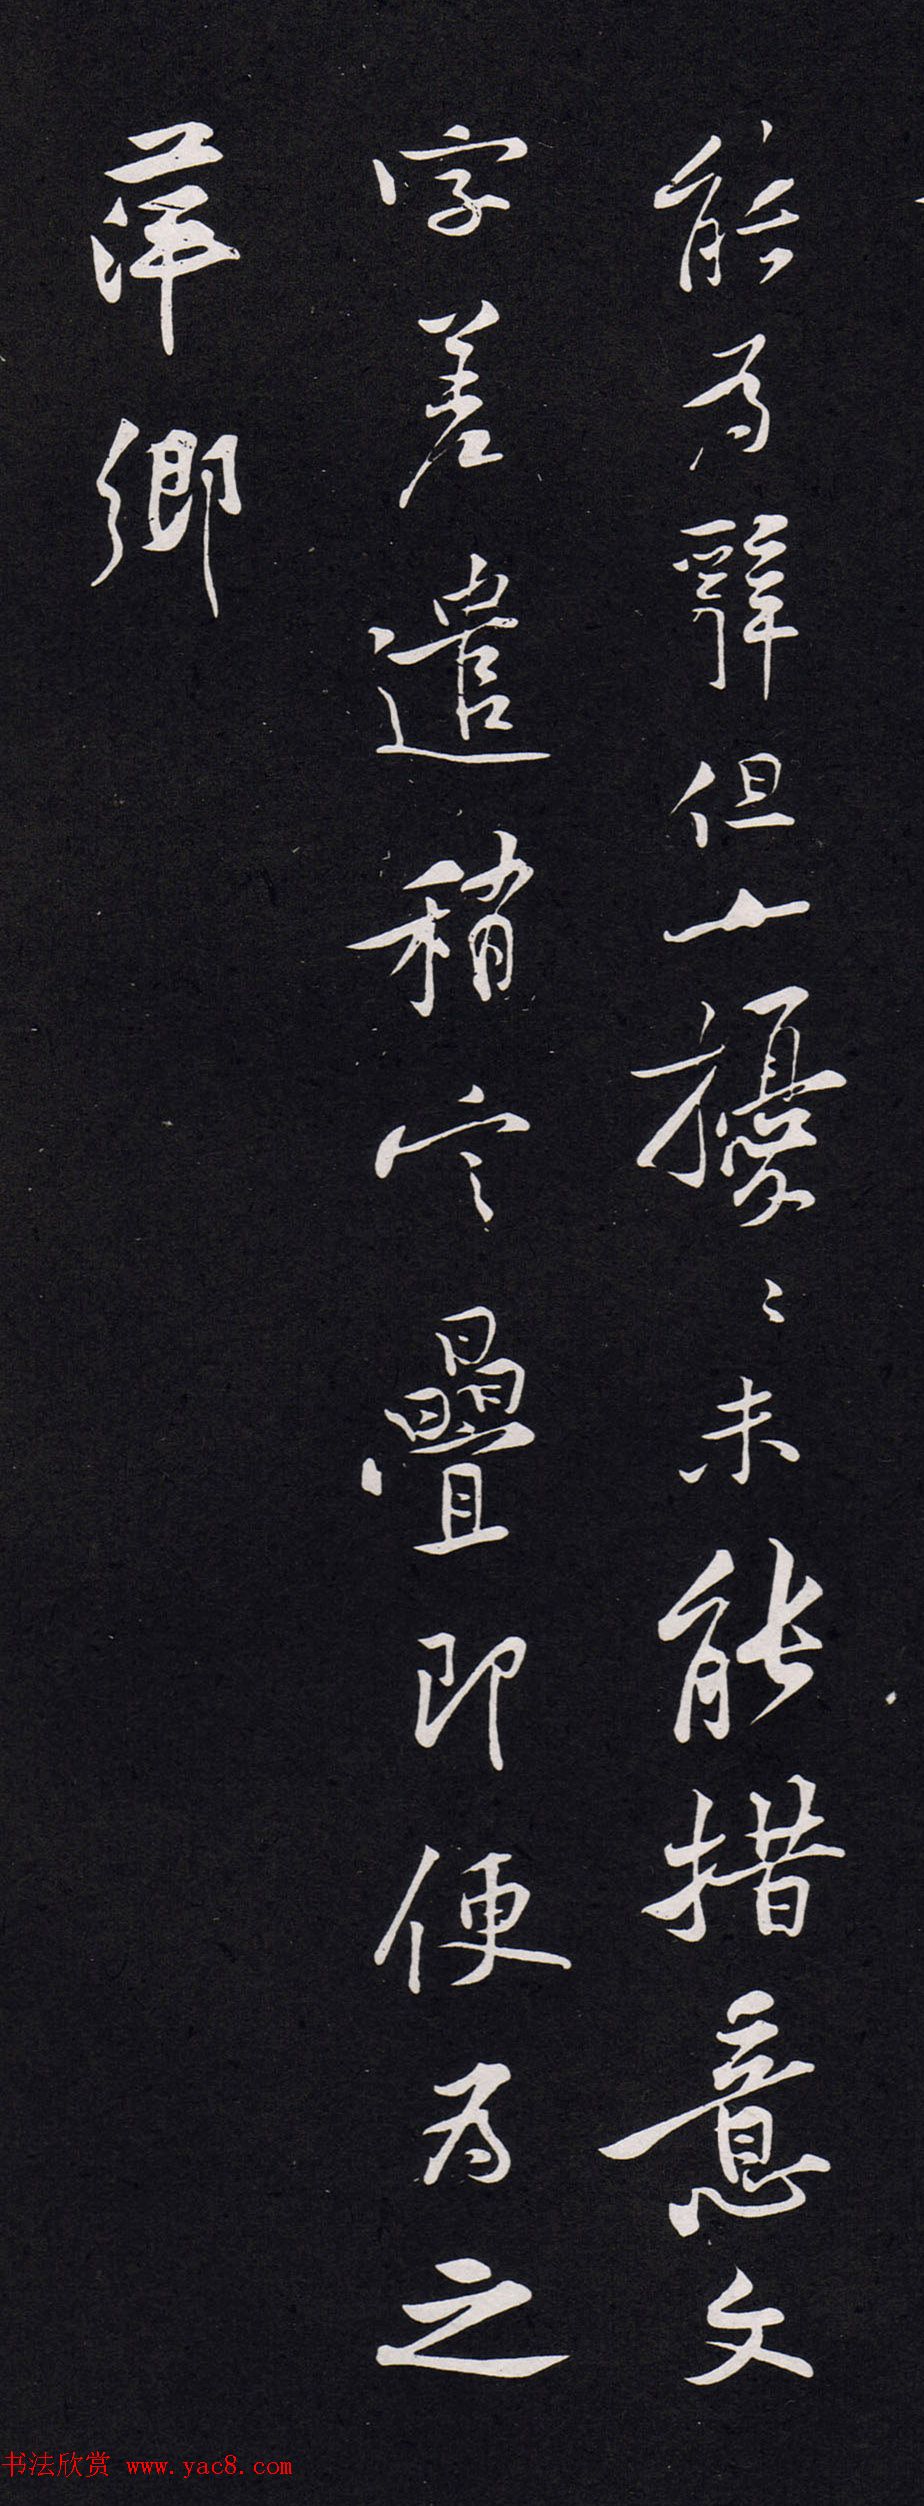 能为辭但上擾〻未能措意文
字差遣稍定疊即便为之
萍鄉
书法欣赏 www.yac8.com